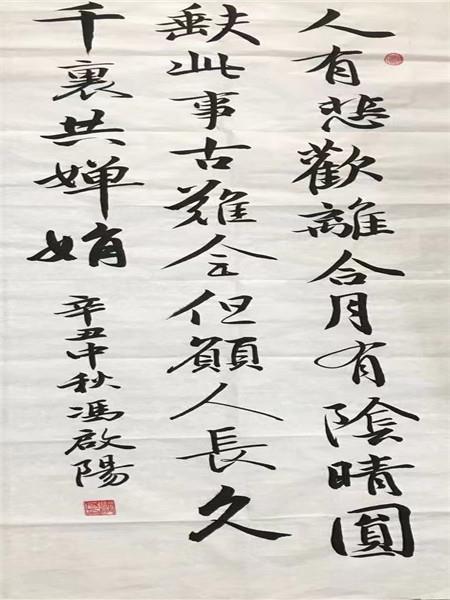 人有悲歡離合月有陰晴圓
缺此事古難全但願人長久
千裏共婵娟
辛丑中秋馮啟陽